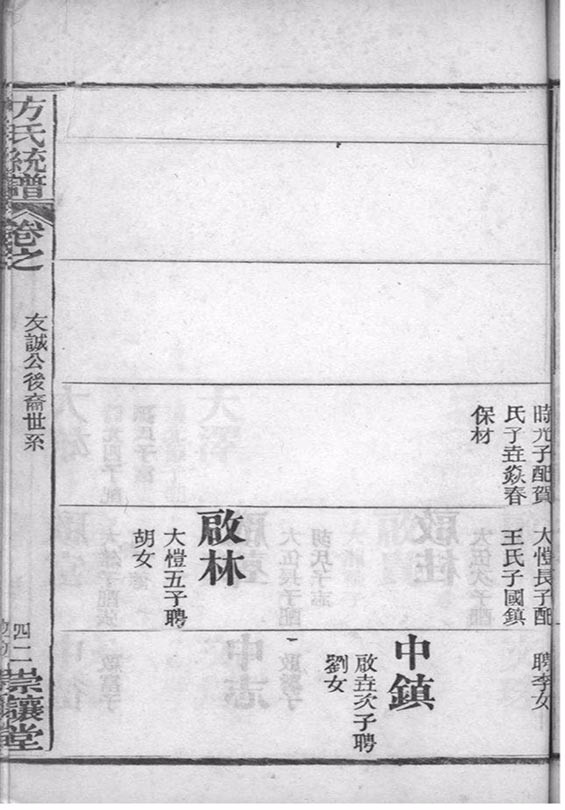 時光子配賀
氏子垚焱春
保材
大愷長子配
王氏子國鎮
啟林
大愷五子聘
胡女
聘李女
中鎮
啟垚次子聘
劉女
方氏統譜
卷之
友誠公後裔世系
四二
崇讓堂